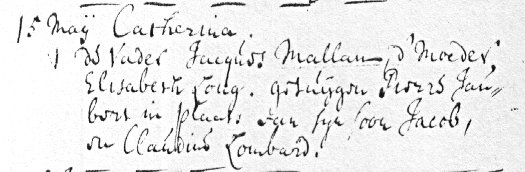 15 Maÿ Catherina.
1 de Vader Jacques Mallan, d'Moeder,
Elisabeth Long. getuÿgen Pierre Jau-
bert in plaats van syn soon Jacob,
en Claudius Lombard.